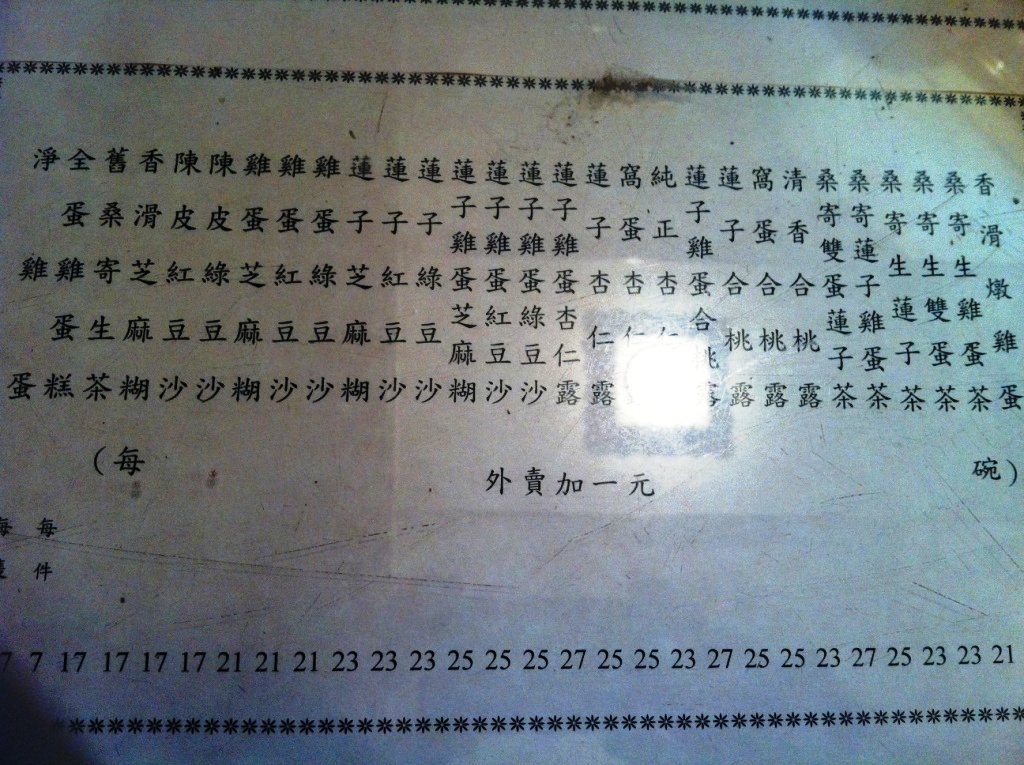 香滑燉雞蛋
桑寄生雞蛋茶
桑寄生雙蛋茶
桑寄生蓮子茶
桑寄蓮子雞蛋茶
桑寄雙蛋蓮子茶
清香合桃露
窩蛋合桃露
蓮子合桃露
蓮子雞蛋合桃露
純正杏仁
窩蛋杏仁
蓮子杏仁露
蓮子雞蛋杏仁露
蓮子雞蛋綠豆沙
蓮子雞蛋紅豆沙
蓮子雞蛋芝麻糊
蓮子綠豆沙
蓮子紅豆沙
蓮子芝麻糊
雞蛋綠豆沙
雞蛋紅豆沙
雞蛋芝麻糊
陳皮綠豆沙
陳皮紅豆沙
香滑芝麻糊
舊桑寄生茶
全蛋雞蛋糕
淨雞蛋
(每 碗)
外賣加一元
每件
每
7 7 17 17 17 17 21 21 21 23 23 23 25 25 25 27 25 25 23 27 25 25 23 27 25 23 23 21